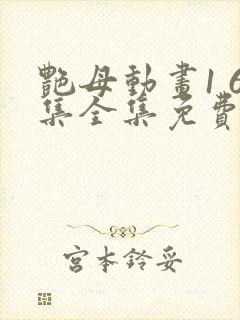 艷母動畫1 6
集全集免費
宮本鈴妥